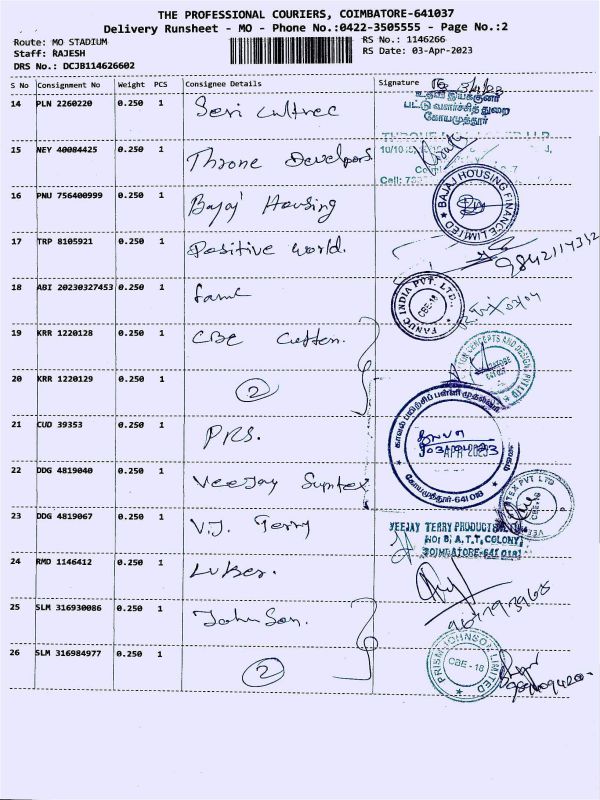 THE PROFESSIONAL COURIERS, COIMBATORE-641037
Delivery Runsheet - MO - Phone No.:0422-3505555 - Page No.:2
Route: MO STADIUM
RS No.: 1146266
Staff: RAJESH
RS Date: 03-Apr-2023
DRS No.: DCJB114626602
S No Consignment No Weight PCS Consignee Details Signature
உதவி இயக்குனர்
பட்டு வளர்ச்சித் துறை
கோயமுத்தூர்
14 PLN 2260220 0.250 1 Seri cultrec
15 NEY 40084425 0.250 1 Throne Develpors
10/10
Cell:
16 PNU 756400999 0.250 1 Bajaj Housing
BAJAJ HOUSING FINANCE LIMITED
17 TRP 8105921 0.250 1 Positive world.
9842114332
18 ABI 20230327453 0.250 1 Fanuc
FANUC INDIA PVT. LTD.,
CBE-18
19 KRR 1220128 0.250 1 CBE Cutten.
CONCEPTS AND DESIGNS PVT LTD
20 KRR 1220129 0.250 1 2
21 CUD 39353 0.250 1 PRS.
காவல் பயிற்சிப் பள்ளி முதல்வர்
03 APR 2023
கோயமுத்தூர்-641 018
22 DDG 4819040 0.250 1 Veejay Syntex
TEX PVT LTD
CBE-18
23 DDG 4819067 0.250 1 V.J. Terry
VEEJAY TERRY PRODUCTS LTD.,
NO: 8, A.T.T. COLONY,
COIMBATORE-641 018
24 RMD 1146412 0.250 1 Lukes.
25 SLM 316930086 0.250 1 Johnson.
26 SLM 316984977 0.250 1 2
PRISM JOHNSON LIMITED
CBE - 18